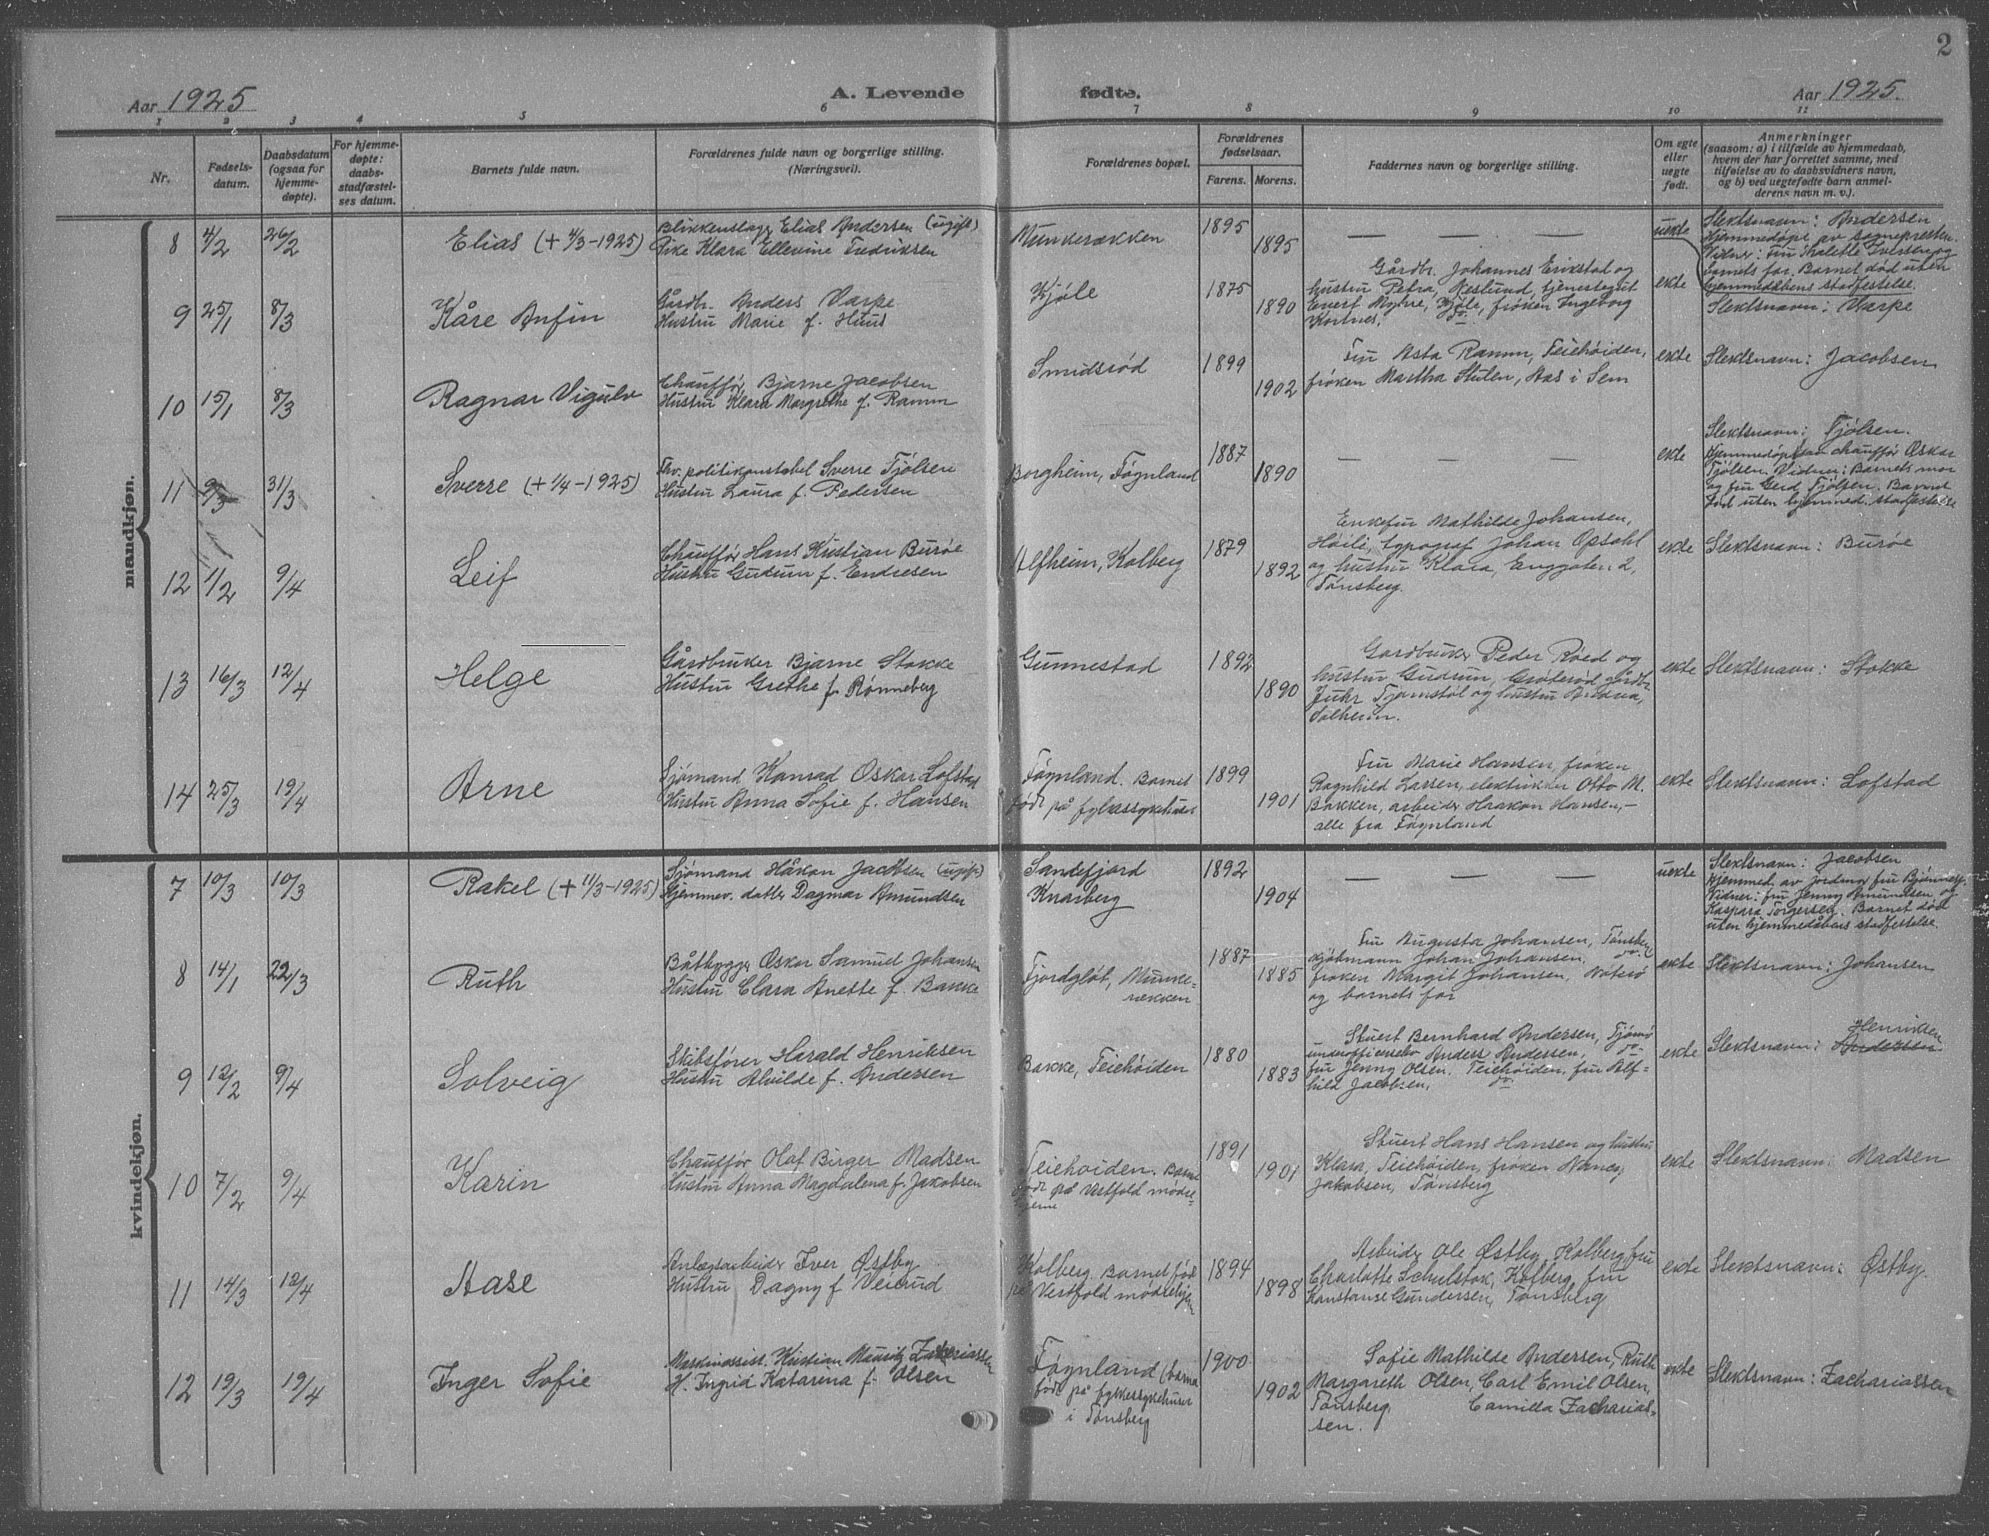 2
Aar 1925
A. Levende fødte.
Aar 1925.
1 2 3 4 5 6 7 8 9 10 11
Nr.
Fødselsdatum.
Daabsdatum (ogsaa for hjemmedøpte).
For hjemmedøpte: daabsstadfæstelses datum.
Barnets fulde navn.
Forældrenes fulde navn og borgerlige stilling. (Næringsvei).
Forældrenes bopæl.
Forældrenes fødselsaar. Farens. Morens.
Faddernes navn og borgerlige stilling.
Om egte eller uegte født.
Anmerkninger (saasom: a) i tilfælde av hjemmedaab, hvem der har forrettet samme, med tilføielse av to daabsvidners navn, og b) ved uegtefødte barn anmelderens navn m. v.).
mandkjøn.
8 4/2 26/2 Elias (+ 4/3-1925)
Blikkenslager Elias Andersen (ugift)
Pike Klara Ellevine Fredriksen
Munkerækken
1895 1895
— — —
uekte
Slektsnavn: Andersen
Hjemmedøpt av sognepresten.
Vidner: Fru Iversen og
barnets far. Barnet død uten
hjemmedåbens stadfestelse.
9 25/1 8/3 Kåre Anfin
Gårdbr. Anders Varpe
Hustru Marie f. Huus
Kjøle
1875 1890
Gårdbr. Johannes Erikstad og
hustru Petra, tjenestegut
Evert Myhre, Kjøle, frøken Ingeborg
Kortnes, do
ekte
Slektsnavn: Varpe
10 15/1 8/3 Ragnar Vigulv
Chauffør Bjarne Jacobsen
Hustru Klara Margrethe f. Ramm
Smidsrød
1899 1902
Fru Asta Ramm, Teiehøiden,
frøken Martha Stulen, Aas i Sem
ekte
Slektsnavn: Jacobsen
11 9/3 31/3 Sverre (+ 1/4-1925)
Fhv. politikonstabel Sverre Tjølsen
Hustru Laura f. Pedersen
Borgheim, Føgnland
1887 1890
— — —
ekte
Slektsnavn: Tjølsen.
Hjemmedøpt av chauffør Oskar
Tjølsen. Vidner: Barnets mor
og fru Gerd Tjølsen. Barnet
død uten hjemmed. stadfestelse
12 1/2 9/4 Leif
Chauffør Hans Kristian Burøe
Hustru Gudrun f. Endresen
Alfheim, Kolberg
1879 1892
Enkefru Mathilde Johansen,
Høili, typograf Johan Opsahl
og hustru Klara, Enggaten 2,
Tønsberg.
ekte
Slektsnavn: Burøe
13 16/3 12/4 Helge
Gårdbruker Bjarne Stokke
Hustru Grethe f. Rønneberg
Gunnestad
1892 1890
Gardbruker Peder Røed og
hustru Gudrun, Grøterød gårdbr.
Juhr Tjomstøl og hustru
Solheim.
ekte
Slektsnavn: Stokke
14 25/3 19/4 Arne
Sjømand Konrad Oskar Lofstad
Hustru Anna Sofie f. Hansen
Føgnland. Barnet
født på fylkessykehuset
1899 1901
Fru Marie Hansen, frøken
Ragnhild Larsen, elektriker Otto M.
Bakken, arbeider Haakon Hansen, -
alle fra Føgnland
ekte
Slektsnavn: Lofstad
kvindekjøn.
7 10/3 10/3 Rakel (+ 11/3-1925)
Sjømand Håkon Jacobsen (ugift)
Hjemmev. datter Dagmar Amundsen
Sandefjord
Knarberg
1892 1904
— — —
uekte
Slektsnavn: Jacobsen
Hjemmed. av jordmor fru
Vidner: fru Jenny Amundsen og
Kaspara Torgersen. Barnet død
uten hjemmedåbens stadfestelse.
8 14/1 22/3 Ruth
Båtbygger Oskar Samuel Johansen
Hustru Clara Anette f. Bakke
Fjordgløt, Munkerekken
1887 1885
Fru Augusta Johansen, Tønsberg
kjøbmann Johan Johansen, do
frøken Margit Johansen, Nøterø
og barnets far
ekte
Slektsnavn: Johansen
9 12/2 9/4 Solveig
Skibsfører Harald Henriksen
Hustru Alvilde f. Andersen
Bakke, Teiehøiden
1880 1883
Stuert Bernhard Andersen, Tjømø
underofficer Anders Andersen, do
fru Jenny Olsen, Teiehøiden, fru Alfhild
Jacobsen, do
ekte
Slektsnavn: Andersen Henriksen
10 7/2 9/4 Karin
Chauffør Olaf Birger Madsen
Hustru Anna Magdalena f. Jakobsen
Teiehøiden. Barnet
født på Vestfold mødrehjem
1891 1901
Stuert Hans Hansen og hustru
Klara, Teiehøiden, frøken Nancy
Jakobsen, Tønsberg
ekte
Slektsnavn: Madsen
11 14/3 12/4 Aase
Anlægsarbeider Iver Østby
Hustru Dagny f. Veierud
Kolberg. Barnet født
på Vestfold mødrehjem
1894 1898
Arbeider Ole Østby, Kolberg fru
Charlotte Schulstok, Kolberg, fru
Konstanse Gundersen, Tønsberg
ekte
Slektsnavn: Østby.
12 19/3 19/4 Inger Sofie
Maskinassist. Kristian Mauritz Zakariassen
H. Ingrid Katarina f. Olsen
Føgnland (barnet
født på fylkessykehuset
i Tønsberg
1900 1902
Sofie Mathilde Andersen, Ruth
Margareth Olsen, Carl Emil Olsen,
Tønsberg. Camilla Zachariassen.
ekte
Slektsnavn: Zachariassen